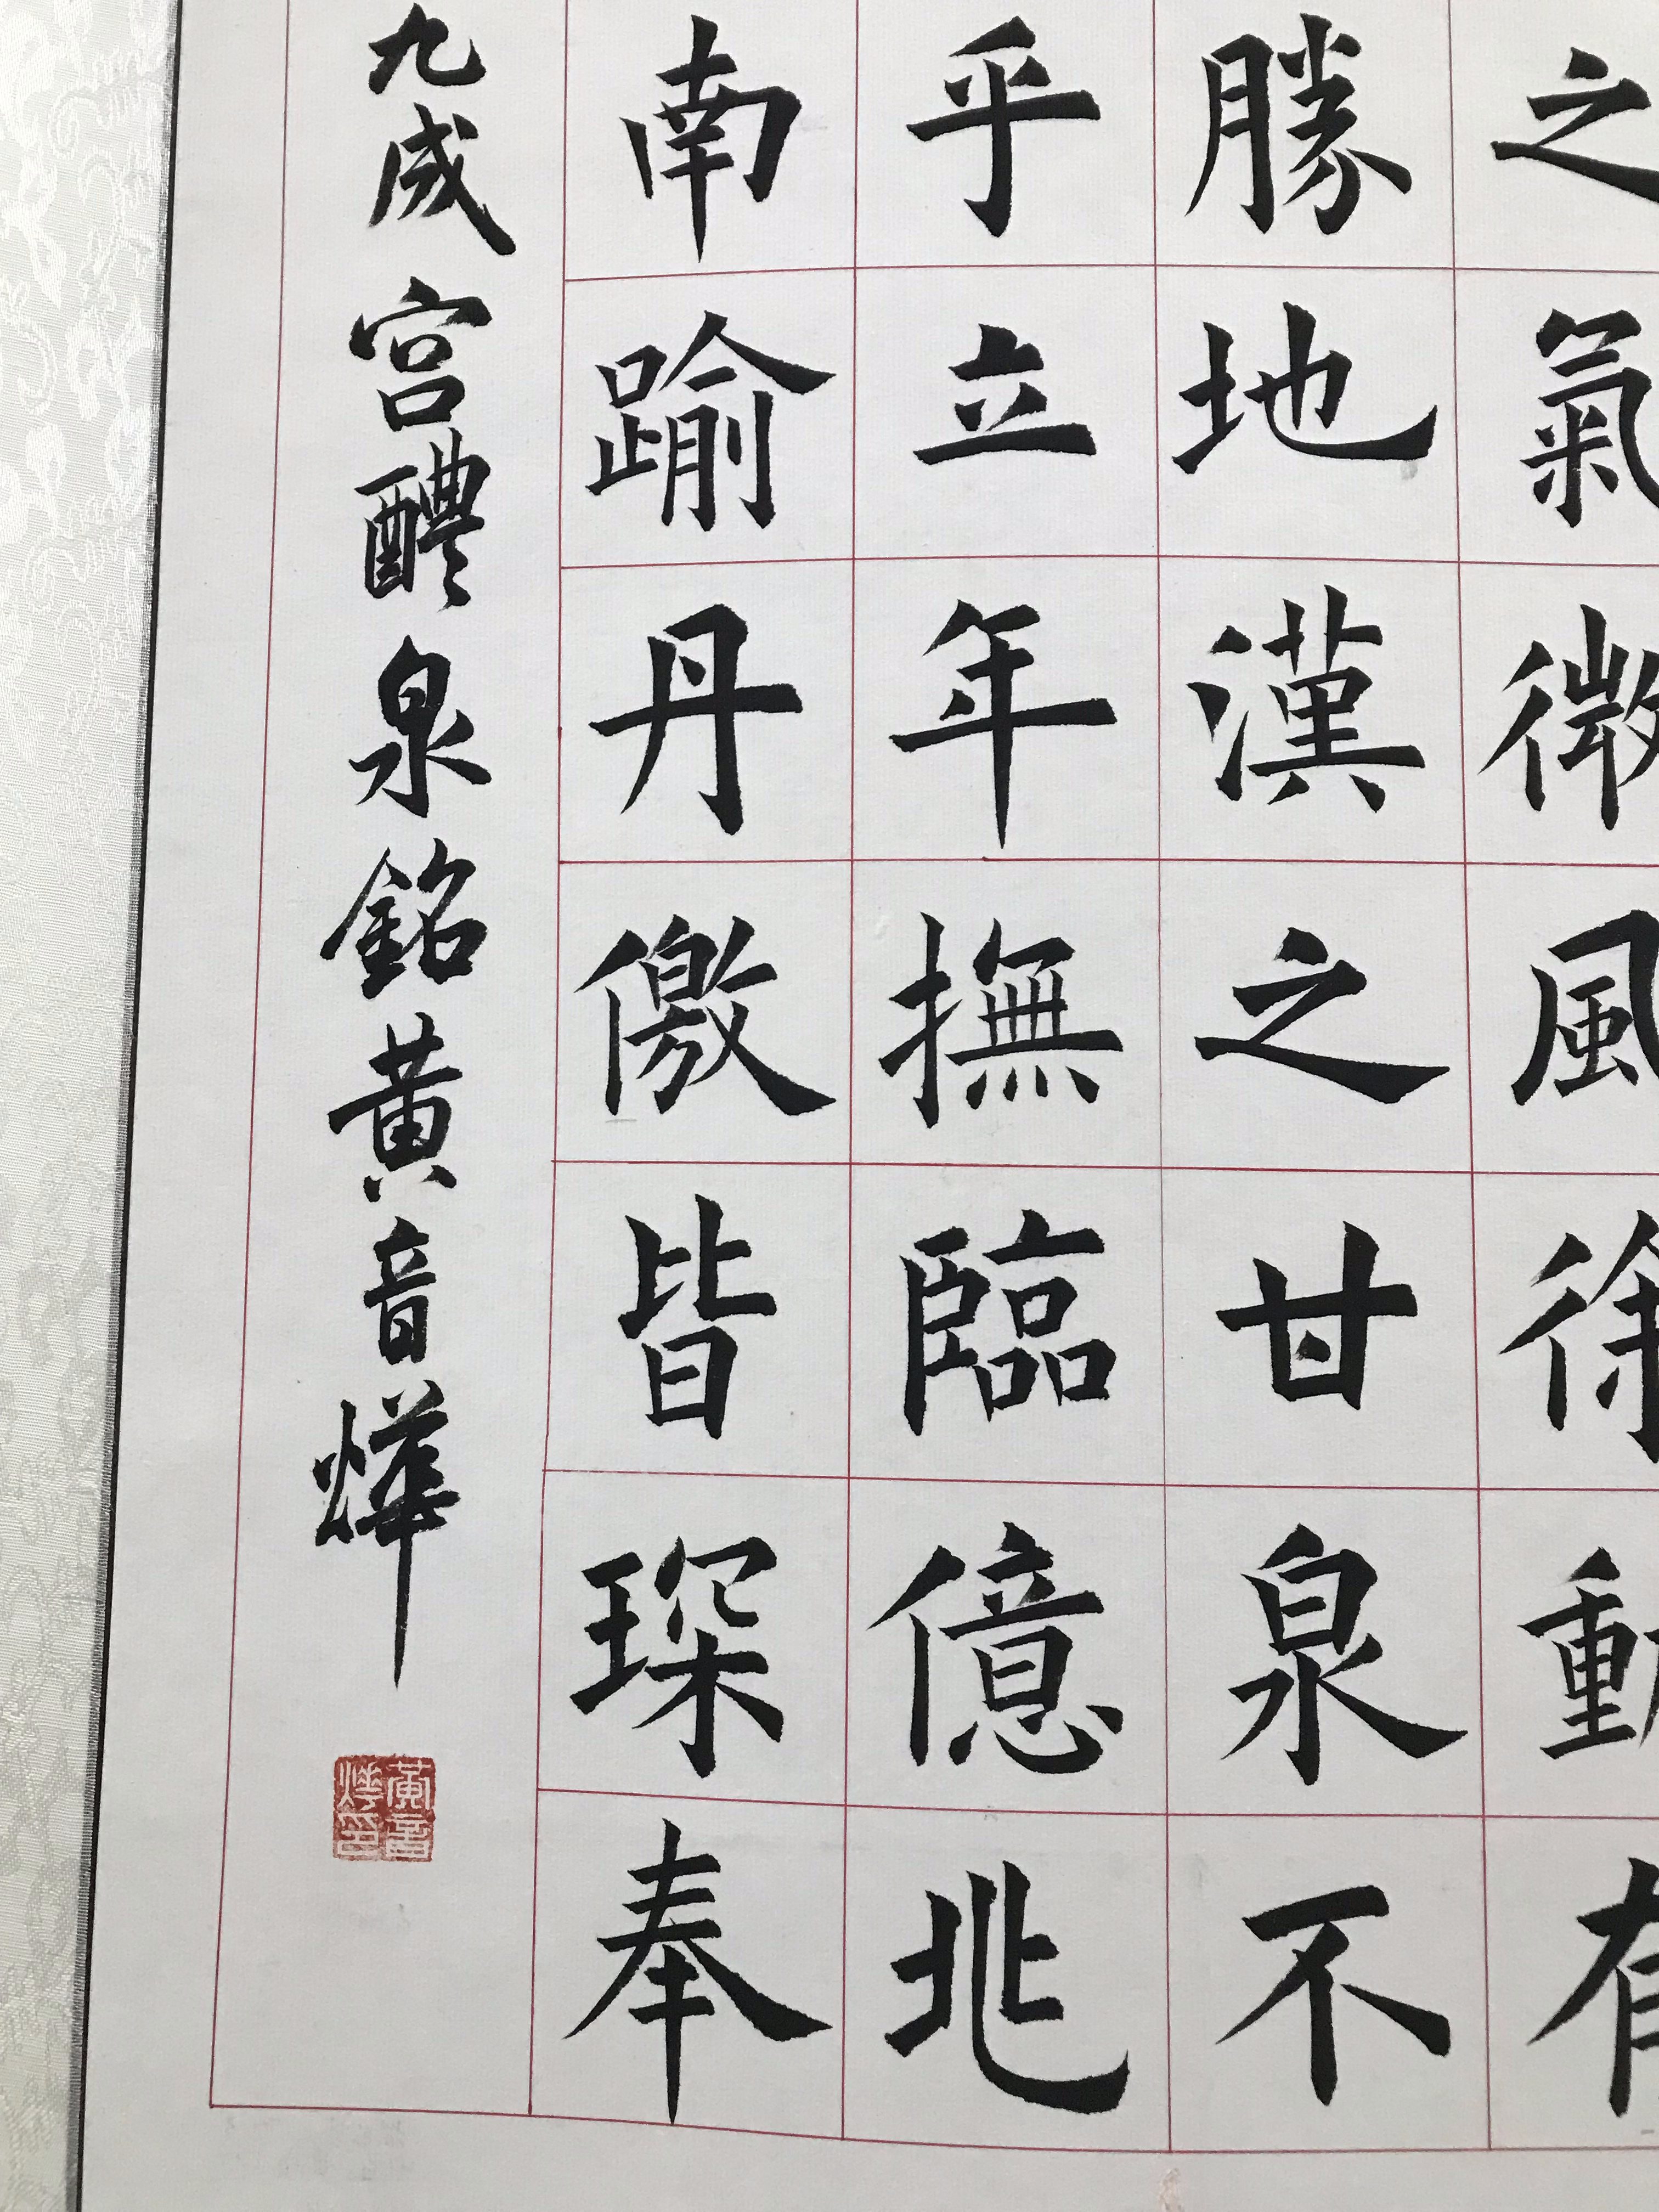 之氣微風徐動有
勝地漢之甘泉不
乎立年撫臨億兆
南踰丹儌皆琛奉
九成宮醴泉銘黃音燁
黃音燁印